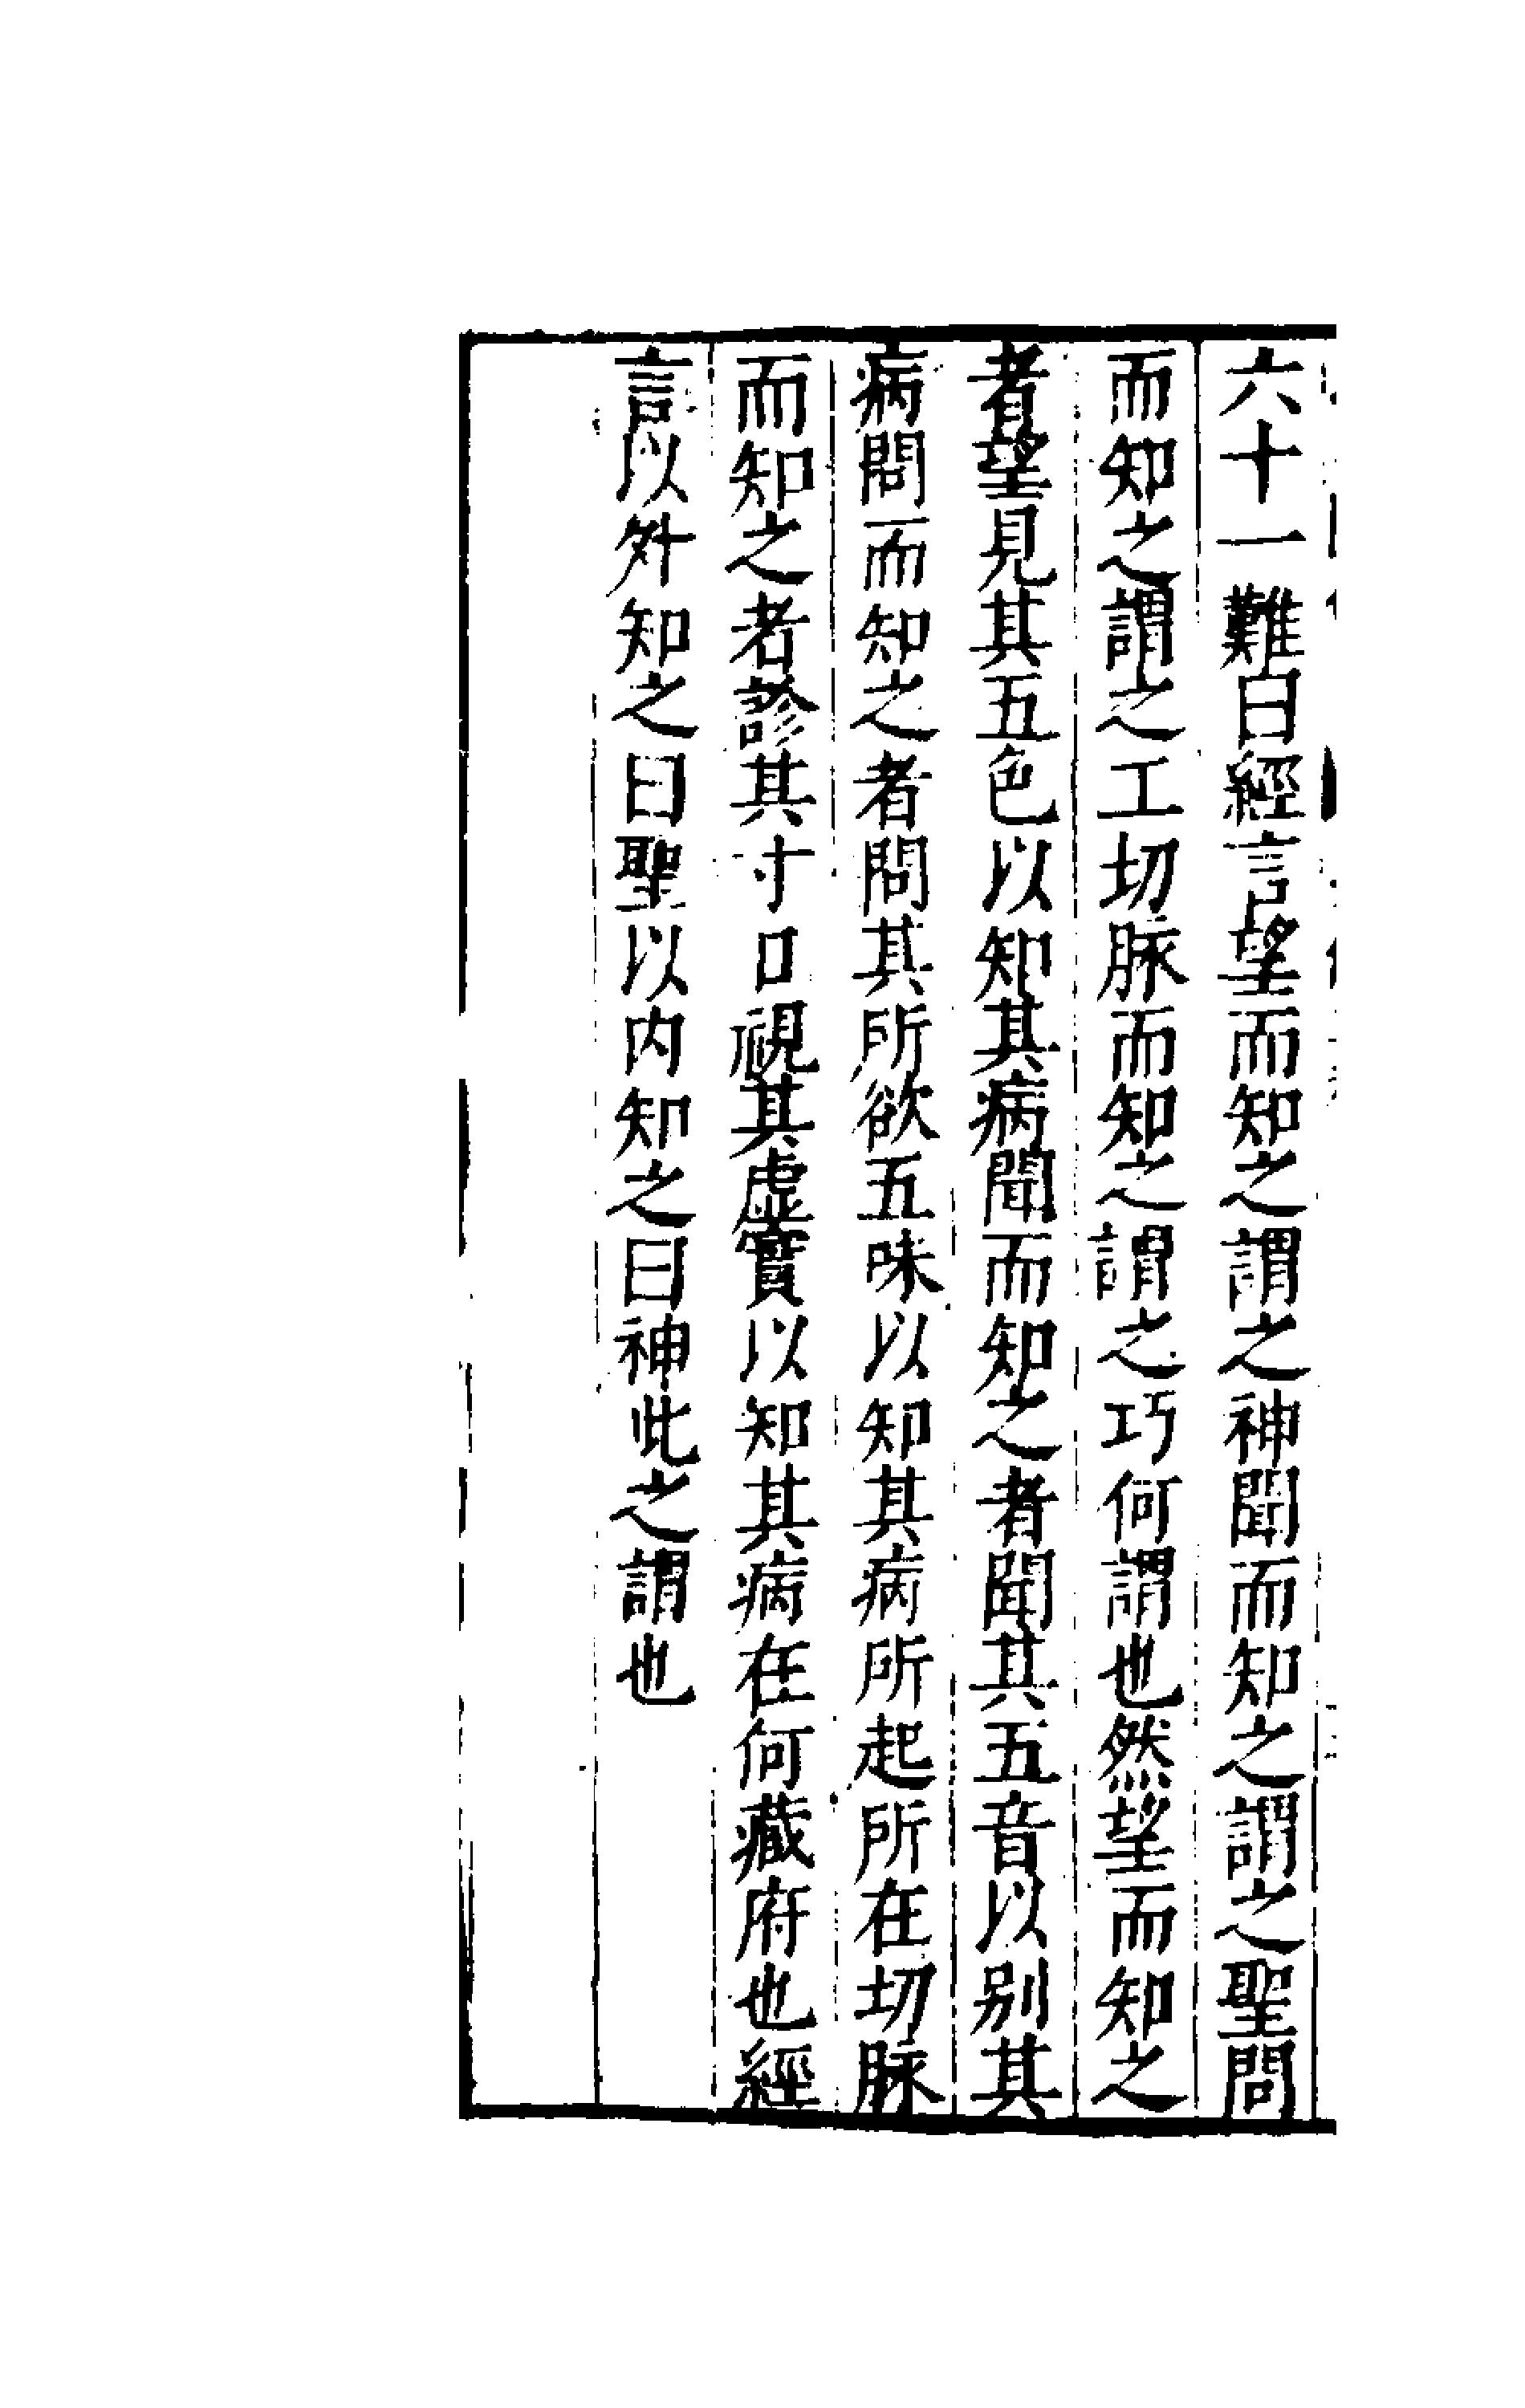 六十一難曰經言望而知之謂之神聞而知之謂之聖問
而知之謂之工切脉而知之謂之巧何謂也然望而知之
者望見其五色以知其病聞而知之者聞其五音以别其
病問而知之者問其所欲五味以知其病所起所在切脉
而知之者診其寸口視其虛實以知其病在何藏府也經
言以外知之曰聖以内知之曰神此之謂也